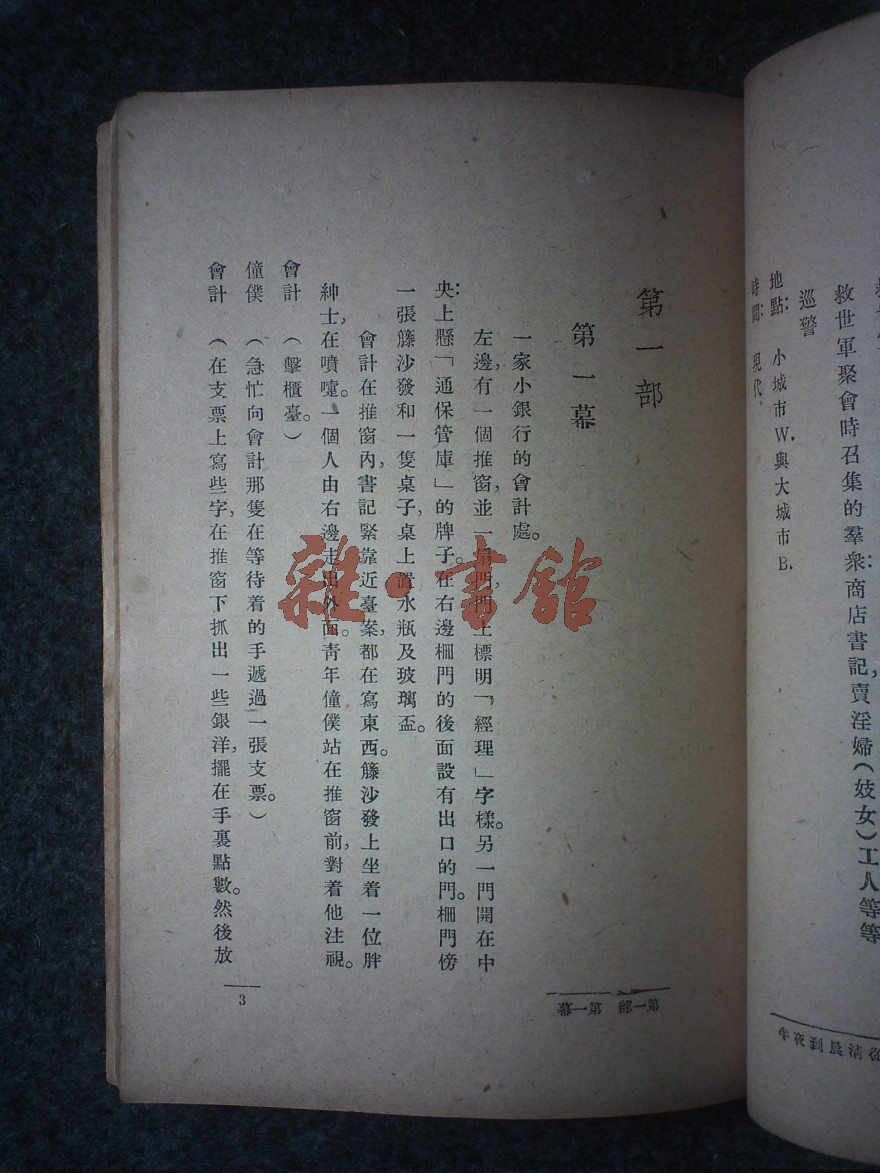 救世軍聚會時召集的羣衆：商店書記，賣淫婦（妓女）工人等等
巡警
地點：小城市W.與大城市B.
時間：現代
從清晨到夜半
第一部
第一幕
一家小銀行的會計處。
左邊，有一個推窗，並一扇門，門上標明「經理」字樣。另一門開在中
央：上懸「通保管庫」的牌子。在右邊柵門的後面設有出口的門。柵門傍
一張籐沙發和一隻桌子，桌上置水瓶及玻璃盃。
會計在推窗內，書記緊靠近臺案，都在寫東西。籐沙發上坐着一位胖
紳士，在噴嚏。一個人由右邊走出外面。青年僮僕站在推窗前，對着他注視。
會計（擊櫃臺。）
僮僕（急忙向會計那隻在等待着的手遞過一張支票。）
會計（在支票上寫些字，在推窗下抓出一些銀洋，擺在手裏點數。然後放
第一部 第一幕
3
雜·書館